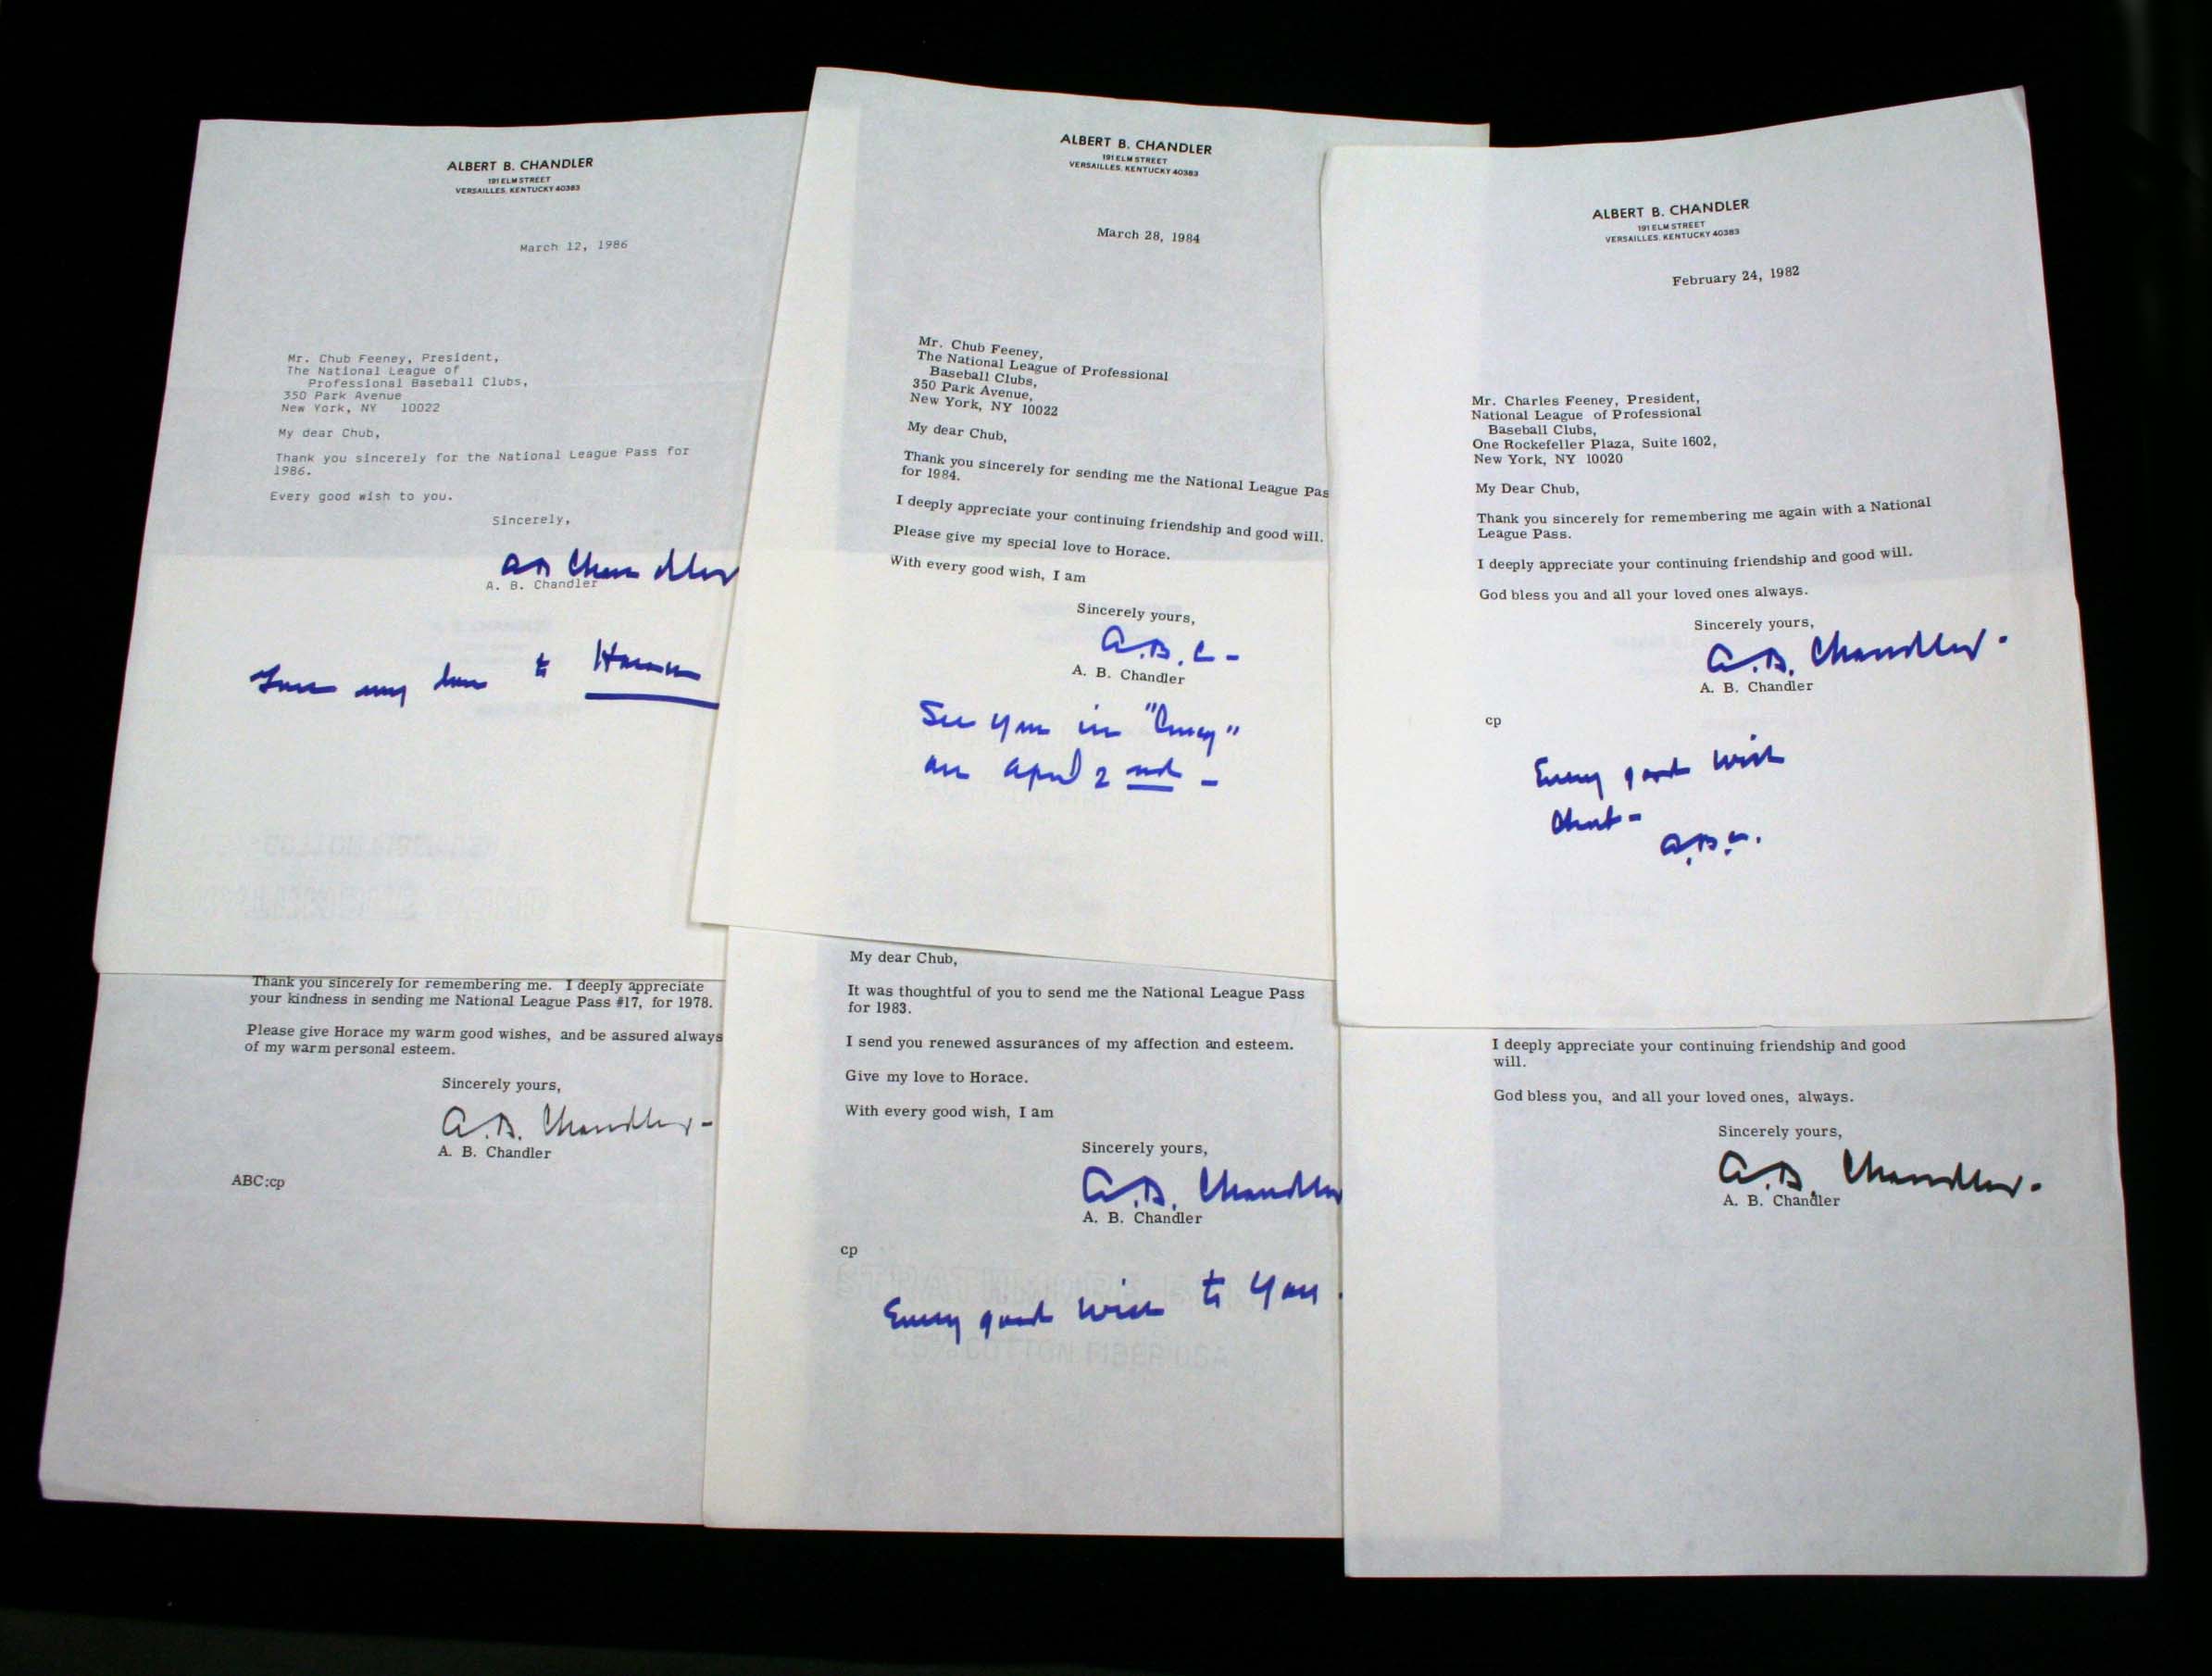 ALBERT B. CHANDLER
191 ELM STREET
VERSAILLES, KENTUCKY 40383
March 12, 1986
Mr. Chub Feeney, President,
The National League of
Professional Baseball Clubs,
350 Park Avenue
New York, NY 10022
My dear Chub,
Thank you sincerely for the National League Pass for
1986.
Every good wish to you.
Sincerely,
AB Chandler
A. B. Chandler
my love to Horace
ALBERT B. CHANDLER
191 ELM STREET
VERSAILLES, KENTUCKY 40383
March 28, 1984
Mr. Chub Feeney,
The National League of Professional
Baseball Clubs,
350 Park Avenue,
New York, NY 10022
My dear Chub,
Thank you sincerely for sending me the National League Pas
for 1984.
I deeply appreciate your continuing friendship and good will.
Please give my special love to Horace.
With every good wish, I am
Sincerely yours,
A.B.C-
A. B. Chandler
See you in "Cincy"
on April 2nd -
ALBERT B. CHANDLER
191 ELM STREET
VERSAILLES, KENTUCKY 40383
February 24, 1982
Mr. Charles Feeney, President,
National League of Professional
Baseball Clubs,
One Rockefeller Plaza, Suite 1602,
New York, NY 10020
My Dear Chub,
Thank you sincerely for remembering me again with a National
League Pass.
I deeply appreciate your continuing friendship and good will.
God bless you and all your loved ones always.
Sincerely yours,
A.B. Chandler.
A. B. Chandler
cp
Every good wish
Chub-
A.B.C.
Thank you sincerely for remembering me. I deeply appreciate
your kindness in sending me National League Pass #17, for 1978.
Please give Horace my warm good wishes, and be assured always
of my warm personal esteem.
Sincerely yours,
A.B. Chandler-
A. B. Chandler
ABC:cp
My dear Chub,
It was thoughtful of you to send me the National League Pass
for 1983.
I send you renewed assurances of my affection and esteem.
Give my love to Horace.
With every good wish, I am
Sincerely yours,
A.B. Chandler
A. B. Chandler
cp
Every good wish to you.
STRATHMORE BOND
25% COTTON FIBER USA
I deeply appreciate your continuing friendship and good
will.
God bless you, and all your loved ones, always.
Sincerely yours,
A.B. Chandler.
A. B. Chandler